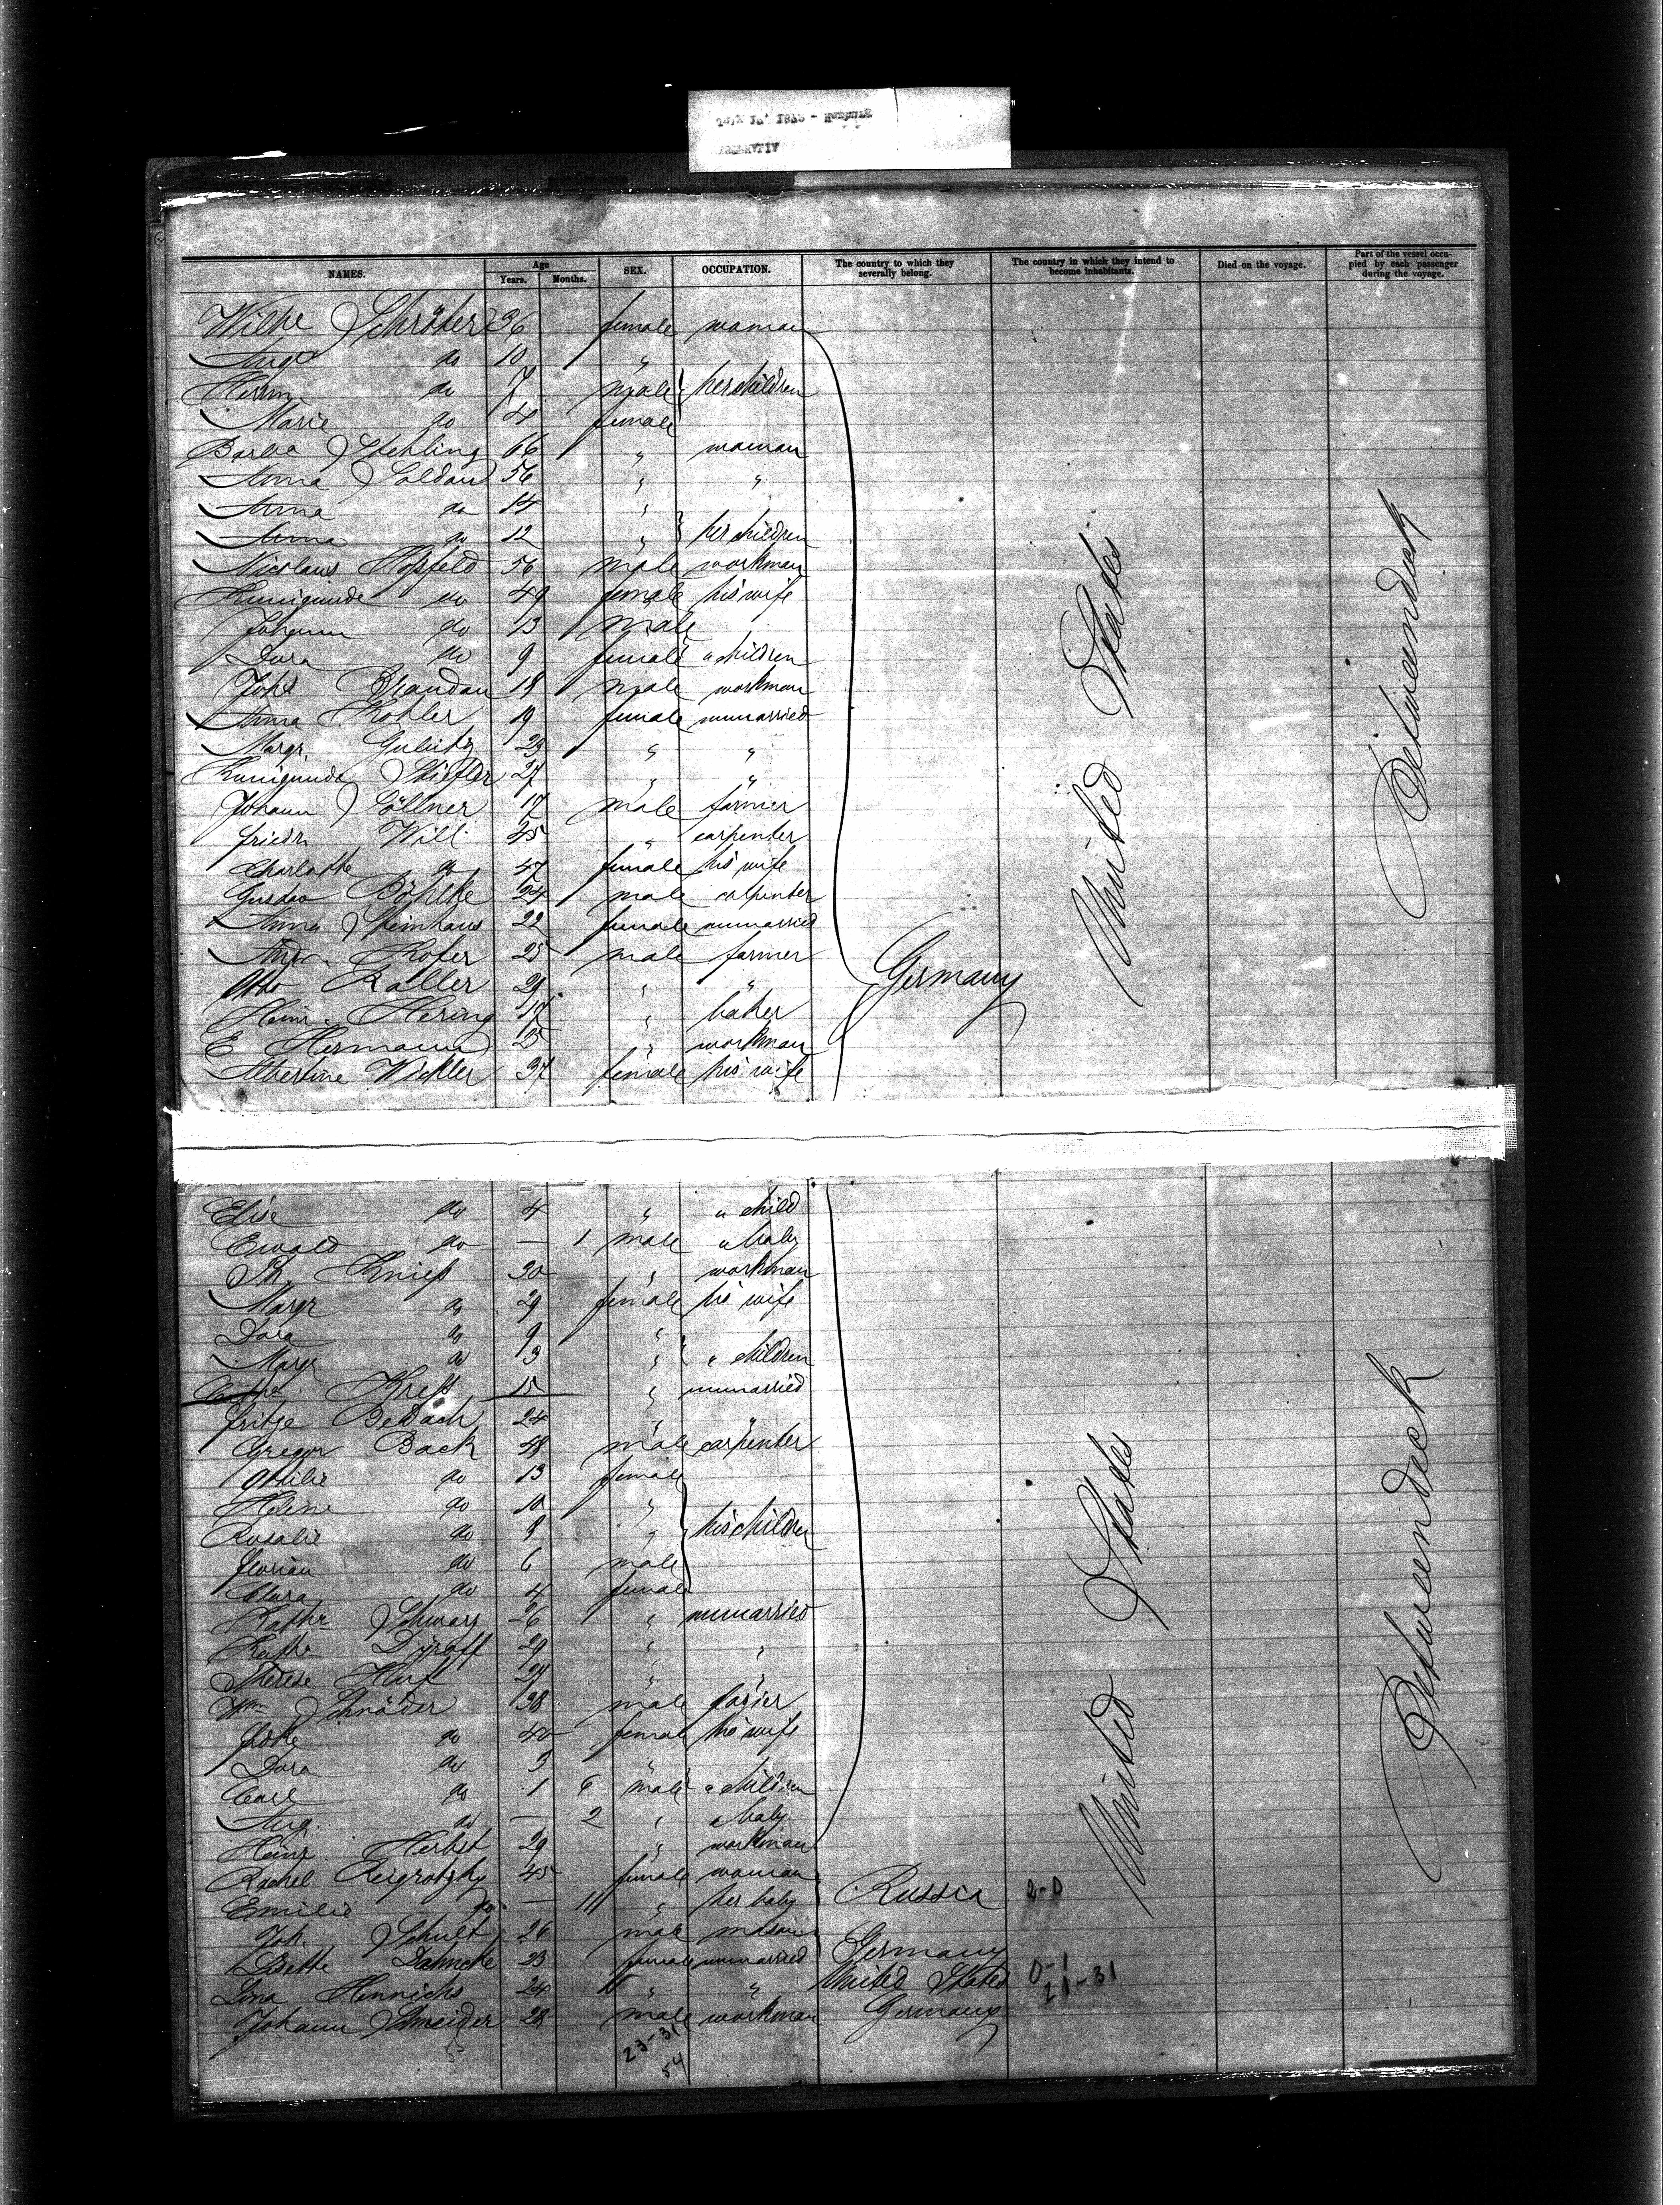 NAMES. Age Years. Months. SEX. OCCUPATION. The country to which they severally belong. The country in which they intend to become inhabitants. Died on the voyage. Part of the vessel occupied by each passenger during the voyage.
Wilhe Schröter 36 female woman
Aug. do 10 "
Herm. do 7 male her children
Marie do 4 female
Barba Stehling 66 " woman
Anna Soldan 56 " "
Anna do 14 "
Anna do 12 " her children
Nicolaus Hoßfeld 56 male workman
Kunigunde do 49 female his wife
Johann do 13 male
Dora do 9 female " children
Johs Brandau 18 male workman
Anna Kohler 19 female unmarried
Margr. 29 " "
Kunigunde Stiefler 27 " "
Johann Söllner 17 male farmer
Friedr. Will 45 " carpenter
Charlotte do 47 female his wife
Gustav Böhlke 24 male carpenter
Anna Steinhaus 22 female unmarried
Andr. Hofer 25 male farmer
Otto Roller 29 " "
Germany
Heinr. Hering 17 " baker
E Hermann 25 " workman
Albertine Wickler 37 female his wife
United States
Betweendeck
Elise do 4 " " child
Ewald do — 1 male " baby
Th. Knieß 30 " workman
Margr do 29 female his wife
Dora do 9 "
Margr do 3 " " children
Kreß 15 " unmarried
Fritze Beldach 24 " "
Gregor Back 48 male carpenter
Ottilie do 13 female
Helene do 10 "
Rosalie do 8 " his children
Florian do 6 male
Clara do 4 female
Kathr Schwarz 26 " unmarried
Kathr Dyroff 29 " "
Therese Harf 24 " "
Wm Schröder 38 male
Lotte do 40 female his wife
Dora do 3 "
Carl do 1 6 male " children
Aug. do — 2 " " baby
Heinr. Herbst 29 " workman
Rachel Reigrotzky 45 female woman
Emilie do — 11 " her baby Russia 2-0
Joh. Schult 26 male mason
Lisette Dahncke 23 female unmarried Germany
Lina Hinrichs 24 " " United States 0-1
21-31
Johann Schneider 28 male workman Germany
23-31
54
United States
Betweendeck